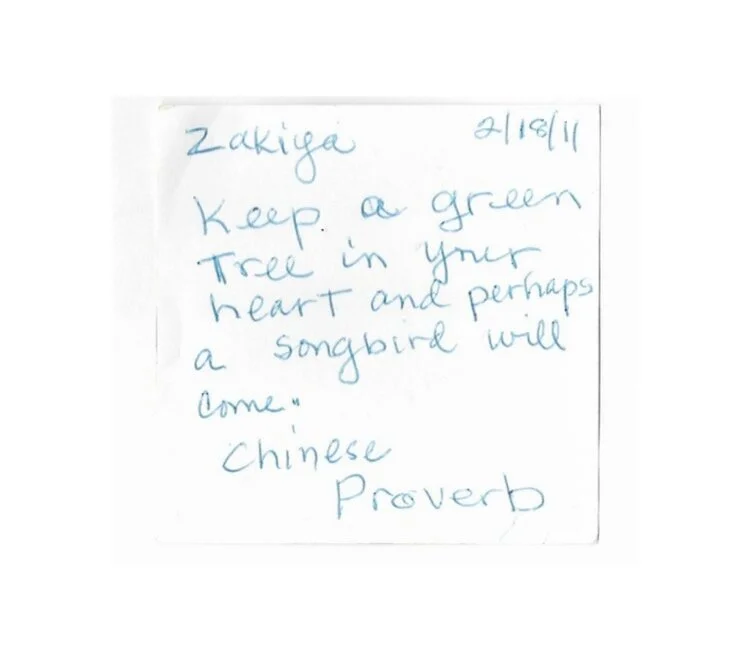 Zakiya 2/18/11
Keep a green
Tree in your
heart and perhaps
a songbird will
come"
Chinese
Proverb